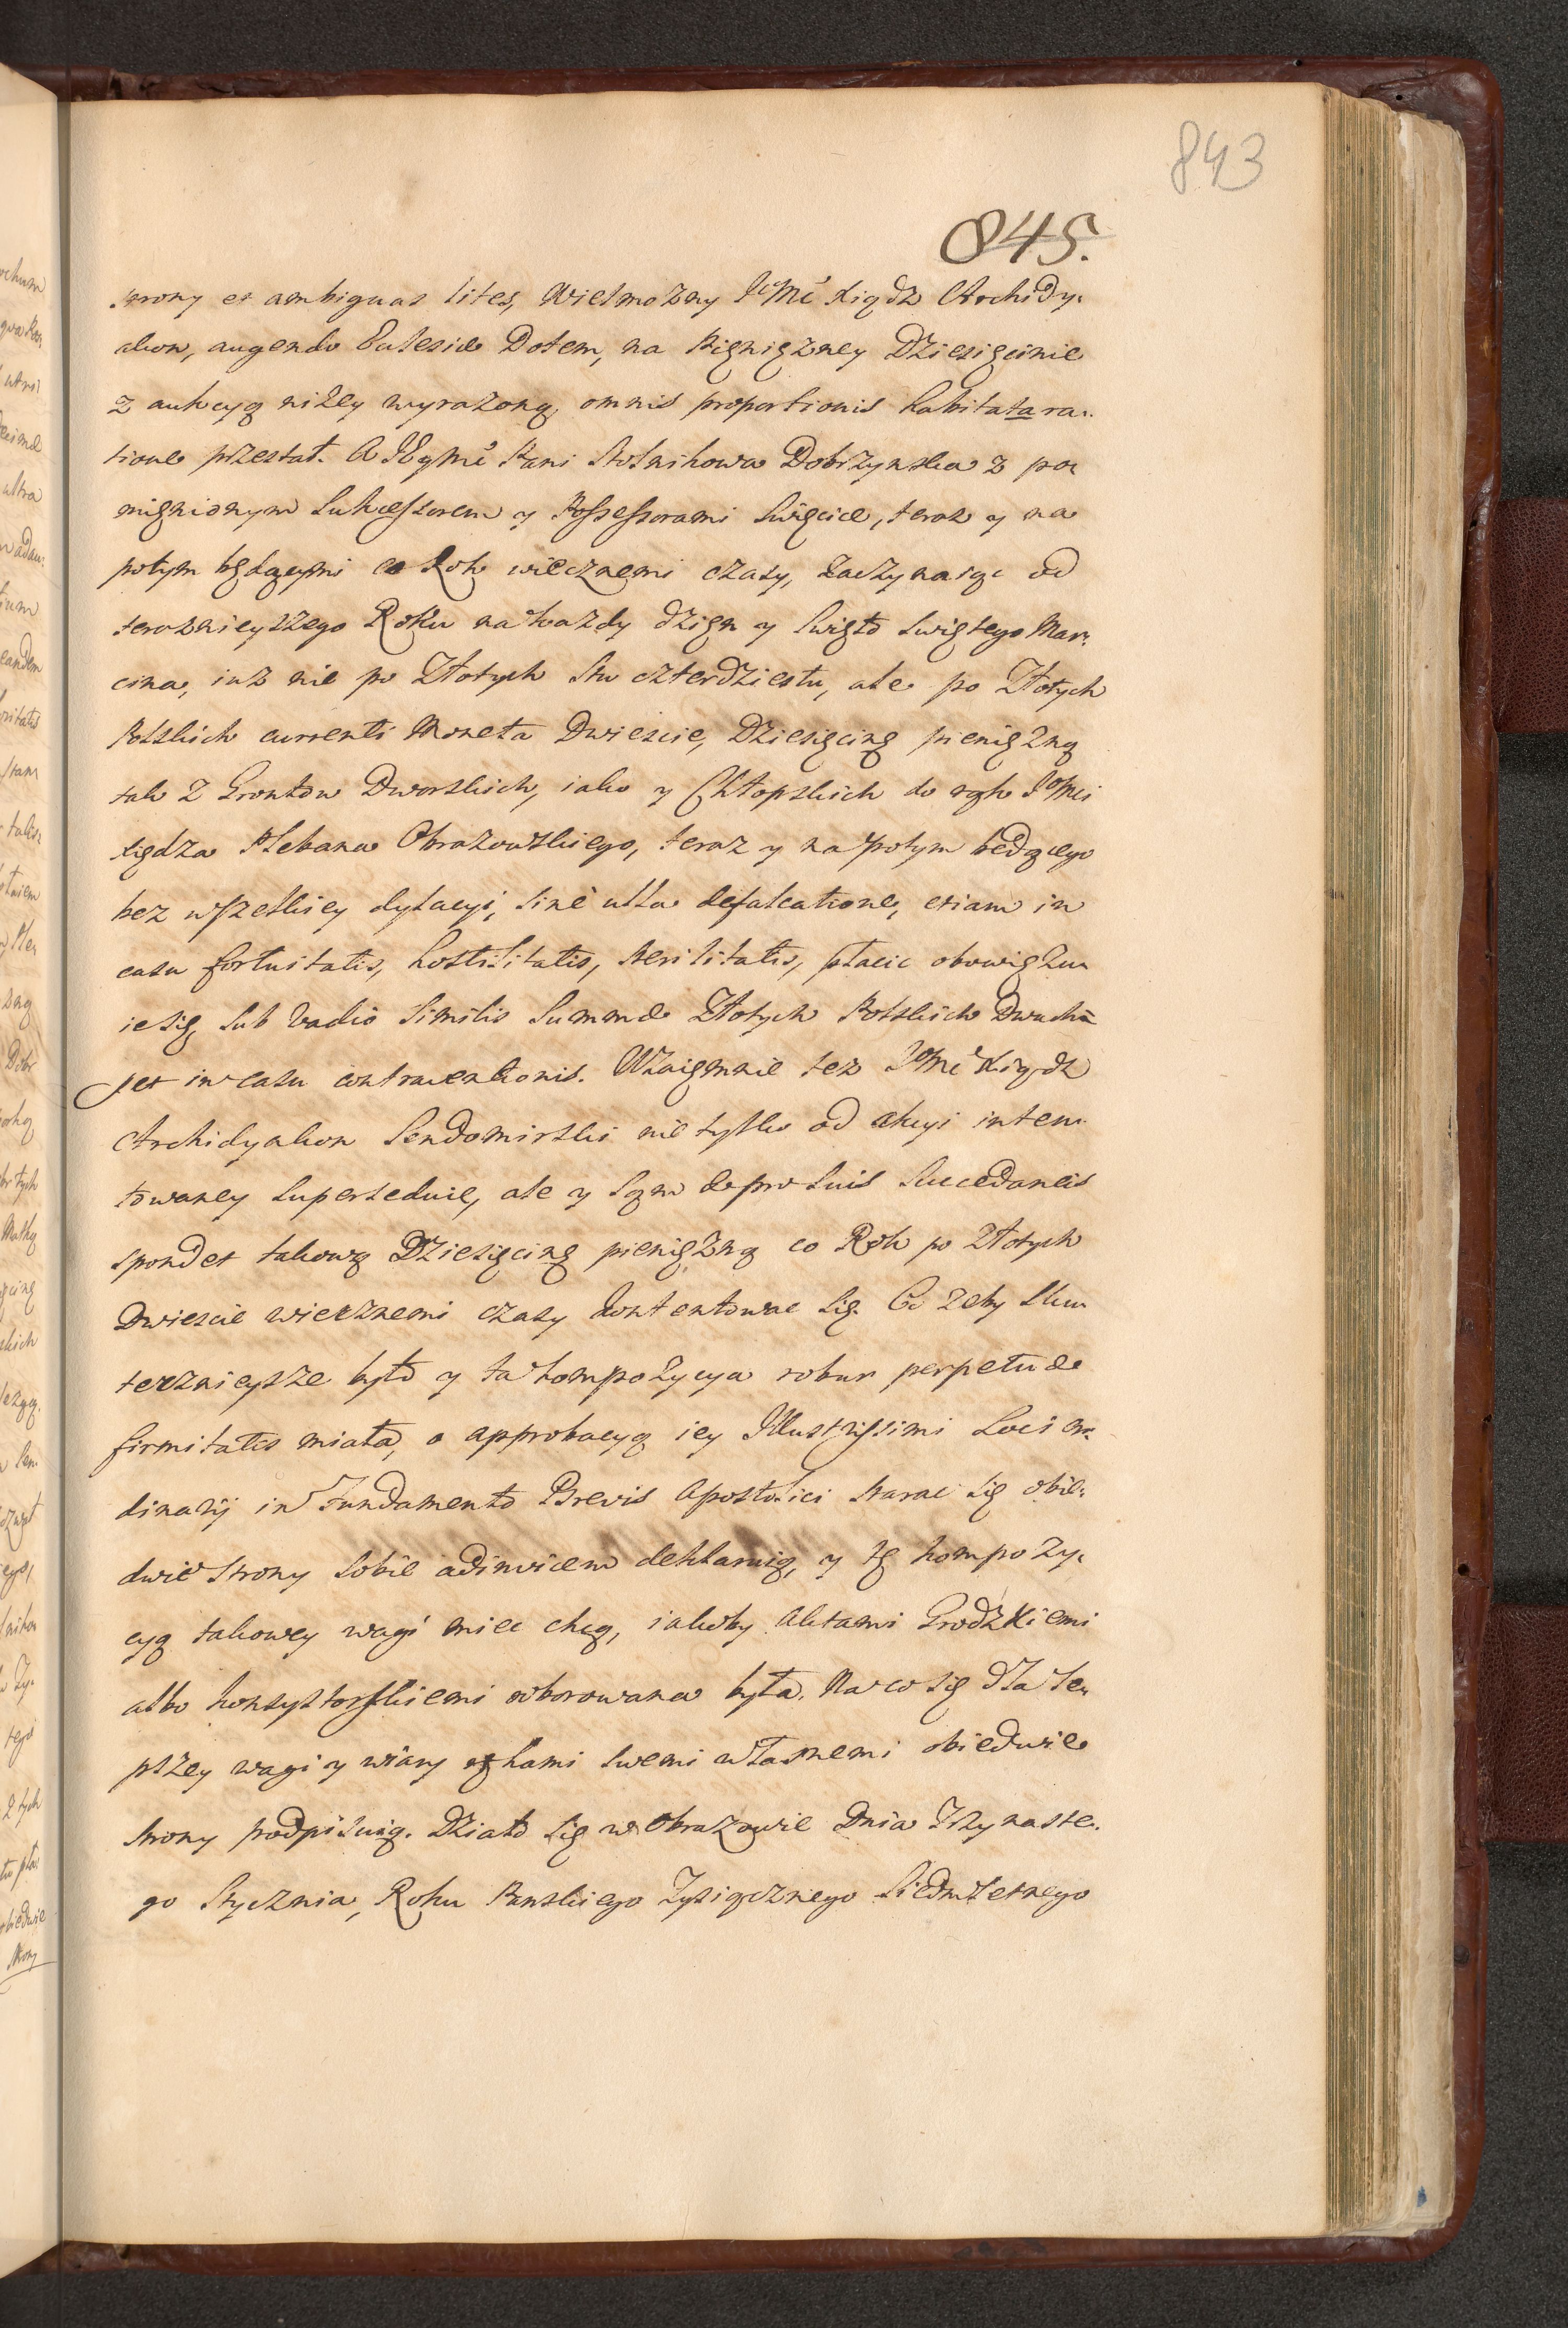 843
845.
strony et ambiguas lites, Wielmożny JcMć Xiądz Archidy:
akon, augendo Eclesiæ Dotem, na Pięniężney Dziesięcinie
z aukcyą niżey wyrażoną, omnis proportionis habitata ra:
tione przestał. A JEyMć Pani Stolnikowa Dobrzynska z po
mięnionym Sukcessorem y Possessorami Swięcice, teraz y na
potym będącymi co Rok wiecznemi czasy, zaczynaiąc od
teraznieyszego Roku na każdy dzięn y Swięto Swiętego Mar:
cina, iuż nie po Złotych Stu czterdziestu, ale po Złotych
Polskich currenti Moneta Dwiescie, Dziesięcinę pieniężną
tak z Grontow Dworskich, iako y Chłopskich do rąk JoMci
Xiędza Plebana Obrazowskiego, teraz y na potym będącego
bez wszelkiey dylacyi, sine ulla defalcatione, etiam in
casu fortuitatis, hostilitatis, sterilitatis, płacic obowięzu
ie się, sub vadio similis Summæ Złotych Polskich Dwuchs
set in casu contraventionis. Wzaięmnie też JoMć Xiądz
Archidyakon Sendomirski nie tylko od akcyi inten
towaney supersedуie, ale y sąm de pro suis Succedaneis
spondet takową Dziesięcinę pieniężną co Rok po Złotych
Dwiescie wiecznemi czasy kontentowac się. Co żeby sku
tecznieysze było y ta kompozycya robur perpetuæ
firmitatis miała, o approbacyą iey Illustrissimi Loci Or
dinarij in Fundamento Brevis Apostolici starac się obie:
dwie strony sobie adinvicem deklaruią, y tę kompozy:
cyą takowey wagi miec chcą, iakoby Aktami Grodzkiemi
albo konsystorskiemi roborowana była. Na co się dla le
pszey wagi y wiary rękami swemi własnemi obiedwie
strony podpisuią. Działo się w Obrazowie Dnia Trzynaste:
go Stycznia, Roku Panskiego Tysiącznego Siedmsetnego